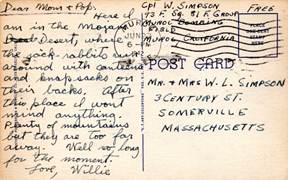 Dear Mom & Pop,
Here I
am in the Mojave
Desert, where
the jack-rabbits run
around with canteens
and knapsacks on
their backs. After
this place I won't
mind anything.
Plenty of mountains
but they are too far
away. Well so long
for the moment.
Love, Willie
Cpl W. SIMPSON
FREE
MUROC
CALIFORNIA
JUN
6
POST CARD
MR. & MRS W. L. SIMPSON
3 CENTURY ST.
SOMERVILLE
MASSACHUSETTS